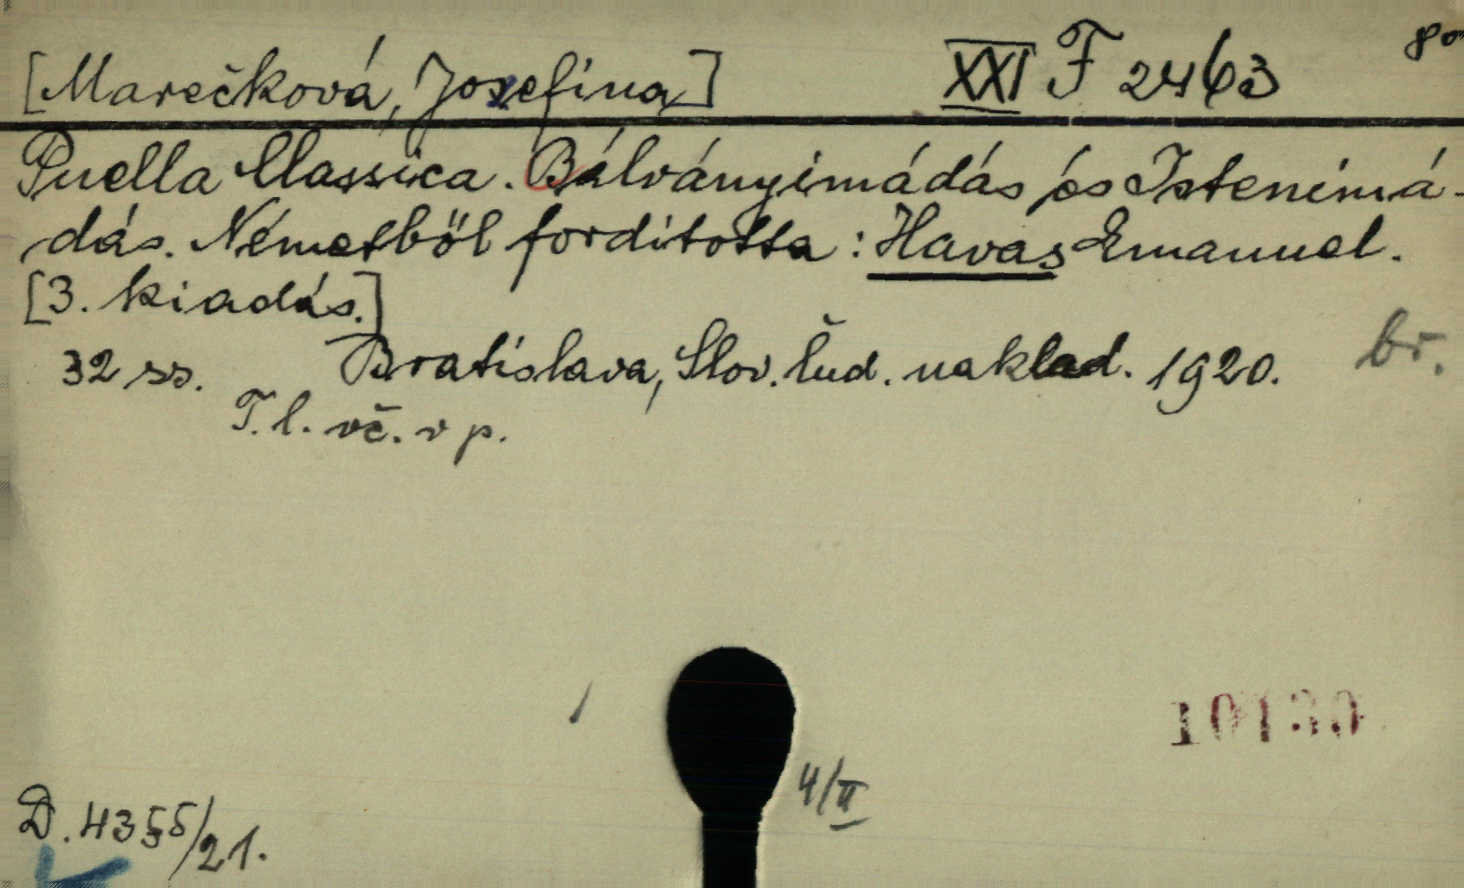 [Marečková, Josefina] XXI F 2463 8°
Puella Classica. Bálványimádás és Istenimá-
dás. Németből fordította: Havas Emanuel.
[3. kiadás.]
32 ss. Bratislava, Slov. ľud. naklad. 1920. br.
T. l. vč. v p.
10130
4/II
D. 4355/21.